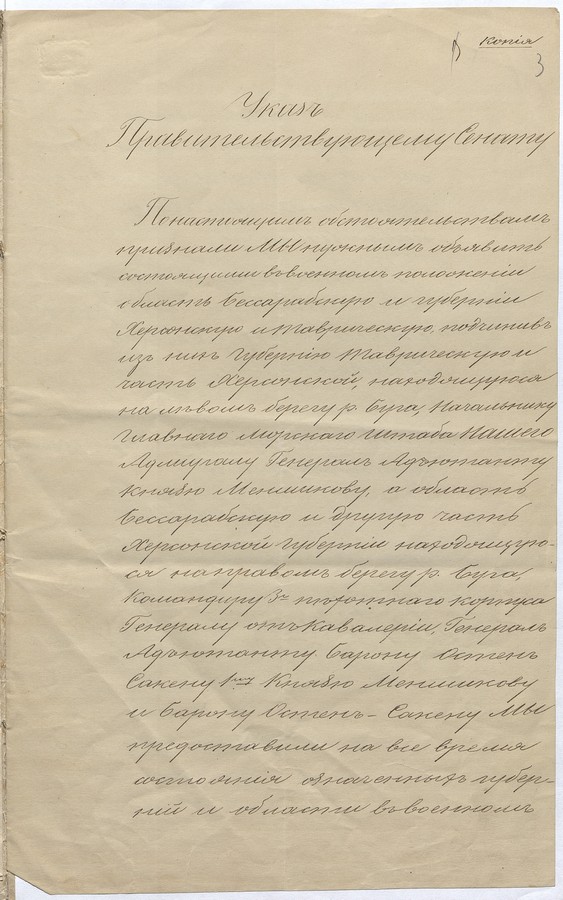 копія
3
Указъ
Правительствующему Сенату
По настоящимъ обстоятельствамъ
признали МЫ нужнымъ объявить
состоящими въ военномъ положеніи
область Бессарабскую и губерніи
Херсонскую и Таврическую, подчинивъ
изъ нихъ Губернію Таврическую и
часть Херсонской, находящуюся
на лѣвомъ берегу р. Буга, Начальнику
Главнаго Морскаго Штаба Нашего
Адмиралу Генералъ Адъютанту
Князю Меншикову, а область
Бессарабскую и другую часть
Херсонской Губерніи находящую-
ся на правомъ берегу р. Буга,
Командиру 3го пѣхотнаго корпуса
Генералу отъ Кавалеріи, Генералъ
Адъютанту Барону Остенъ
Сакену 1му Князю Меншикову
и Барону Остенъ-Сакену МЫ
предоставили на все время
состоянія означенныхъ губер-
ній и области въ военномъ